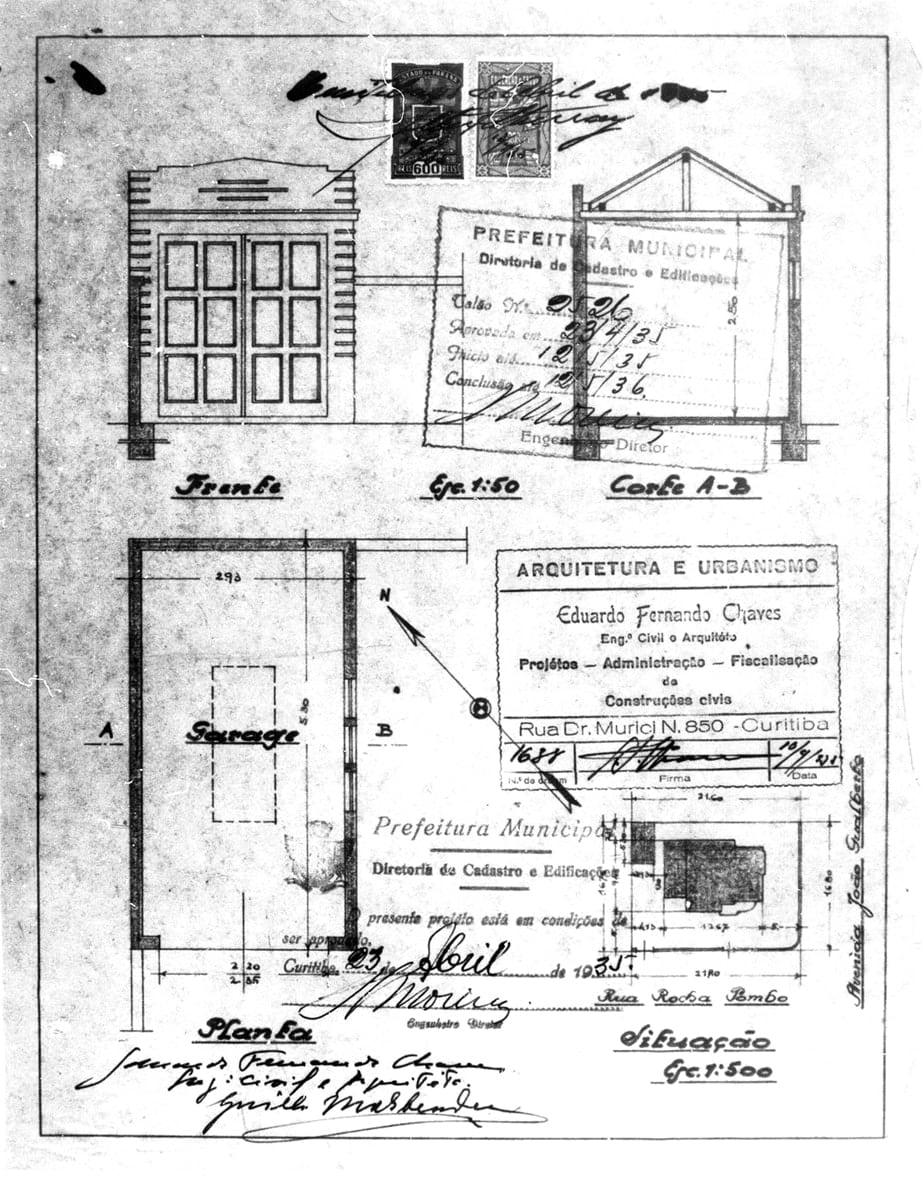 ESTADO DO PARANÁ
600
PREFEITURA MUNICIPAL
Diretoria de Cadastro e Edificações
Talão N.º 2526
Aprovado em 23/4/35
Inicio até 12/5/35
Conclusão até 12/5/36
Engenheiro Diretor
2.80
Frente
Esc. 1:50
Corte A-B
293
N
A
Garage
B
5.80
2 20
ARQUITETURA E URBANISMO
Eduardo Fernando Chaves
Eng.º Civil o Arquitéto
Projétos — Administração — Fiscalisação
de
Construções civis
Rua Dr. Murici N. 850 - Curitiba
1688
N.º de ordem
Firma
Data
Prefeitura Municipal
Diretoria de Cadastro e Edificações
O presente projéto está em condições de
ser aprovado.
Curitiba, 23 de Abril de 1935.
Engenheiro Diretor
Planta
2160
1680
1267
2180
Avenida João Gualberto
Rua Rocha Pombo
Situação
Esc. 1:500
Eduardo Fernando Chaves
Eng. Civil e Arquiteto